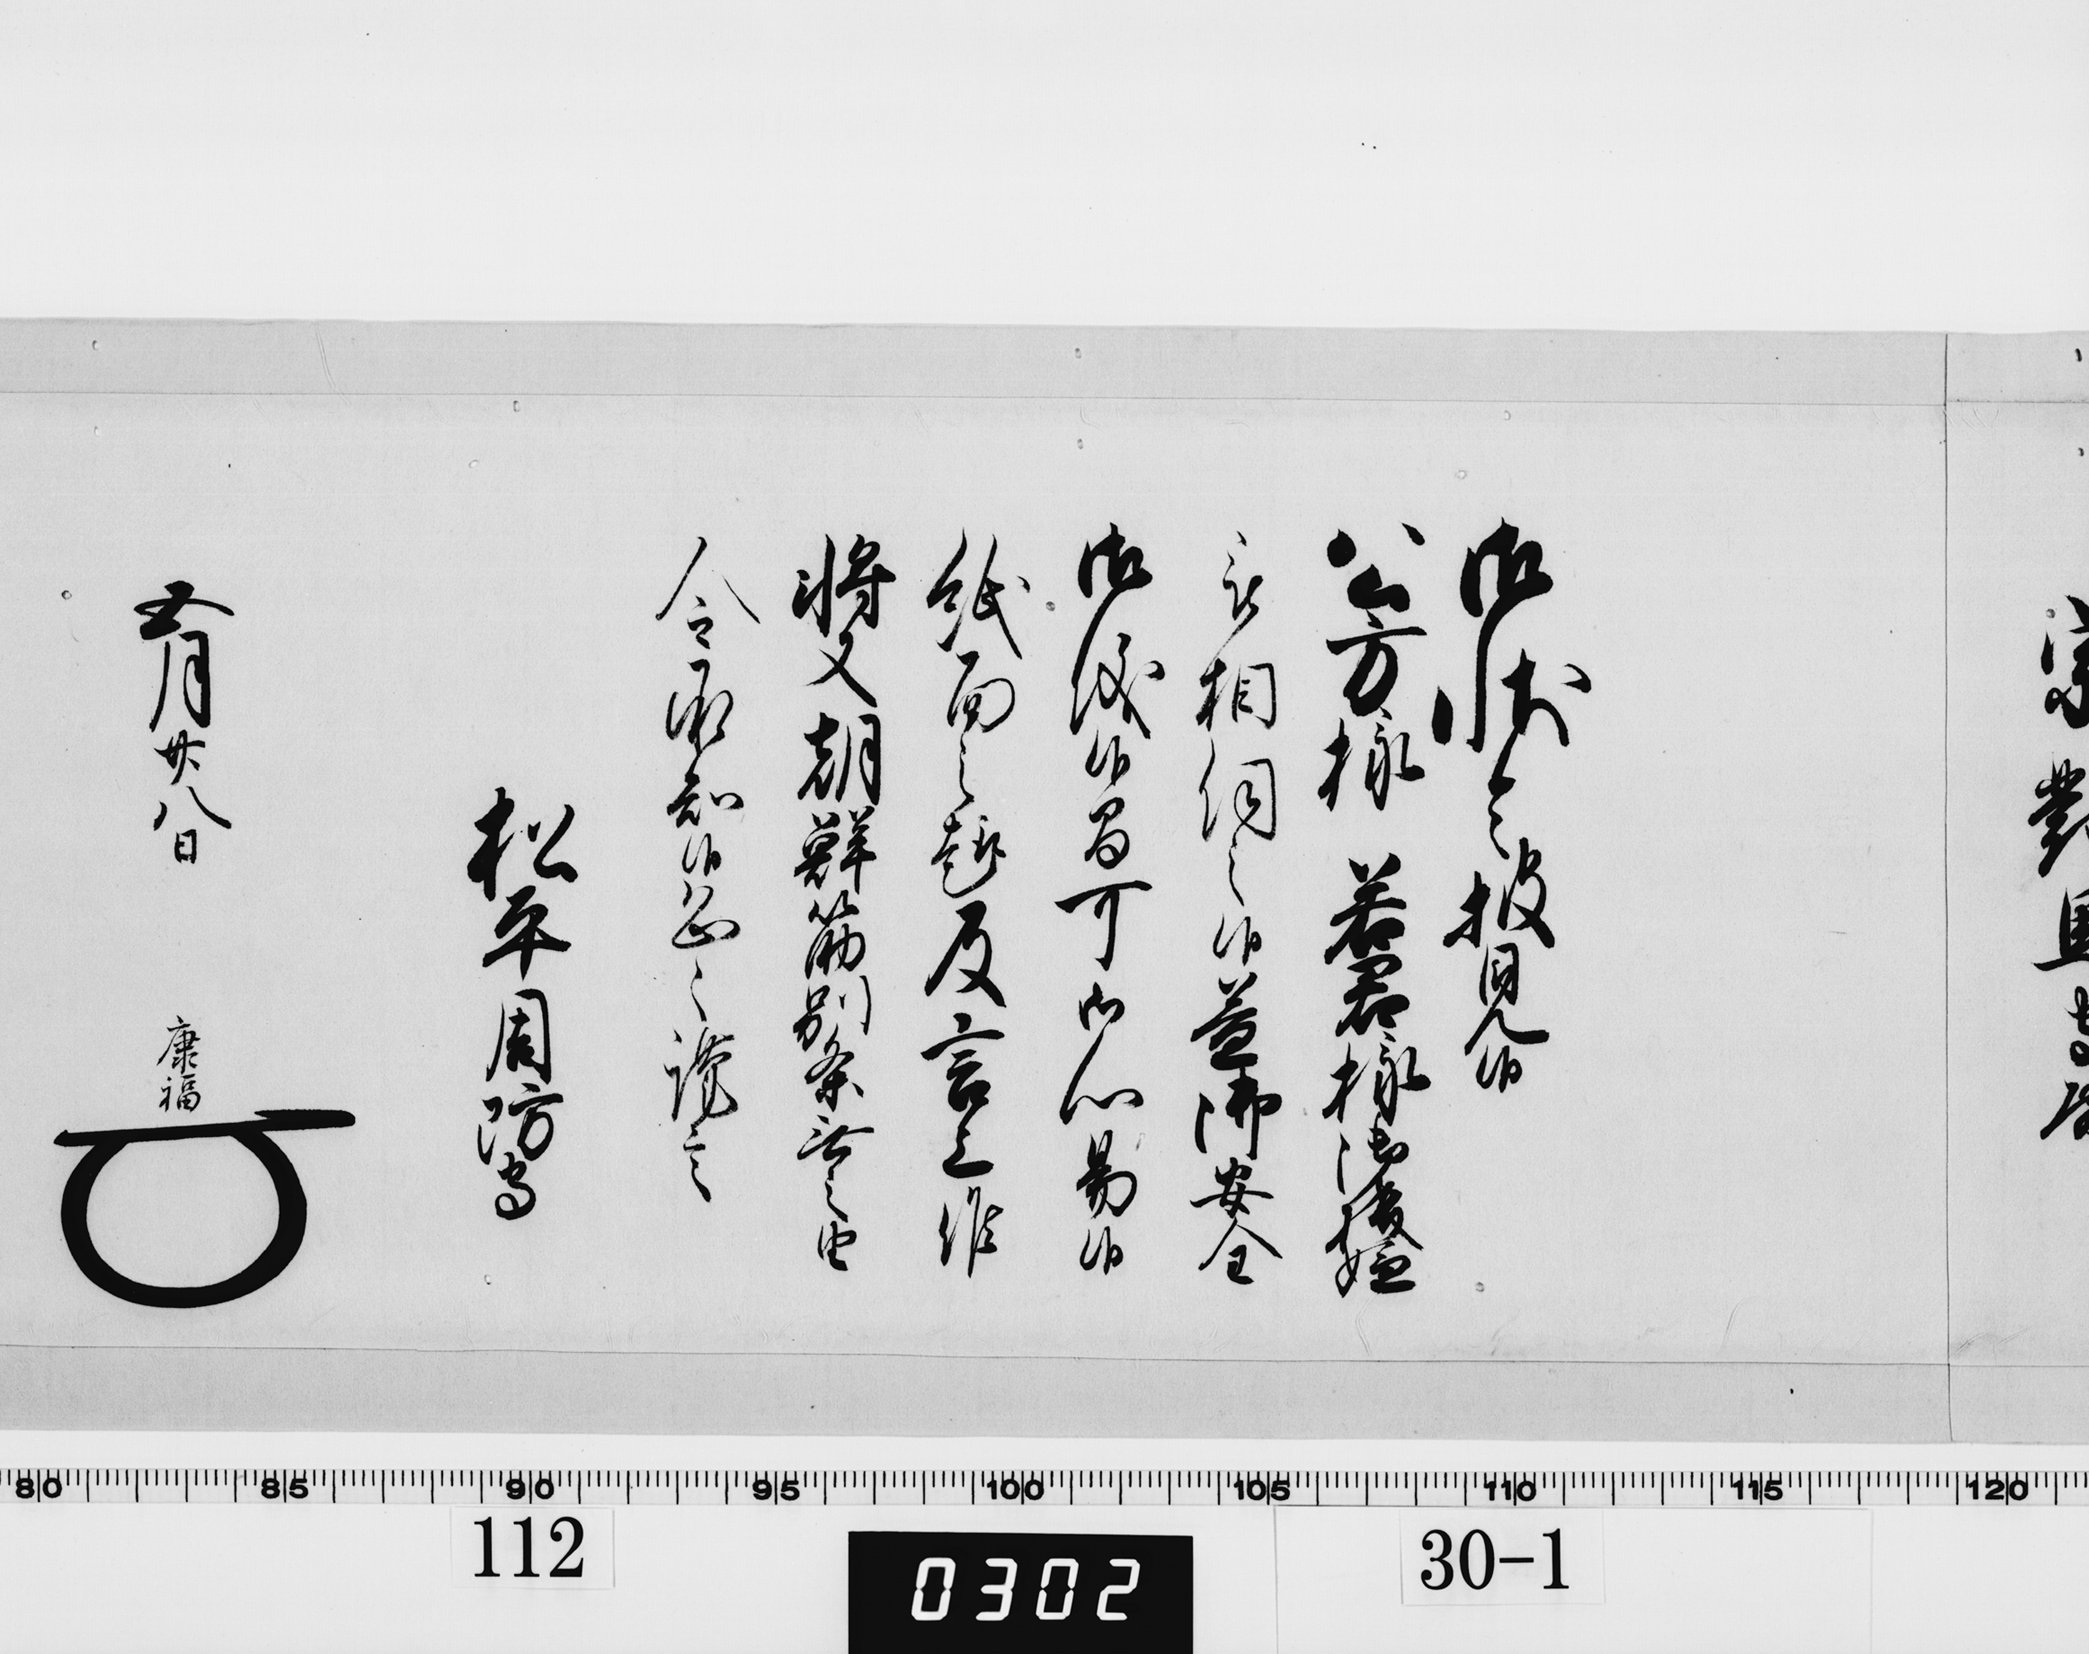 宗對馬守殿
御状令披見候
公方様 若君様御機嫌
被相伺之候益御安全
御儀候間可御心易候
紙面之趣及言上候
将又朝鮮筋別条無之由
令承知候恐々謹言
松平周防守
五月廿八日
康福
80 85 90 95 100 105 110 115 120
112
0302
30-1